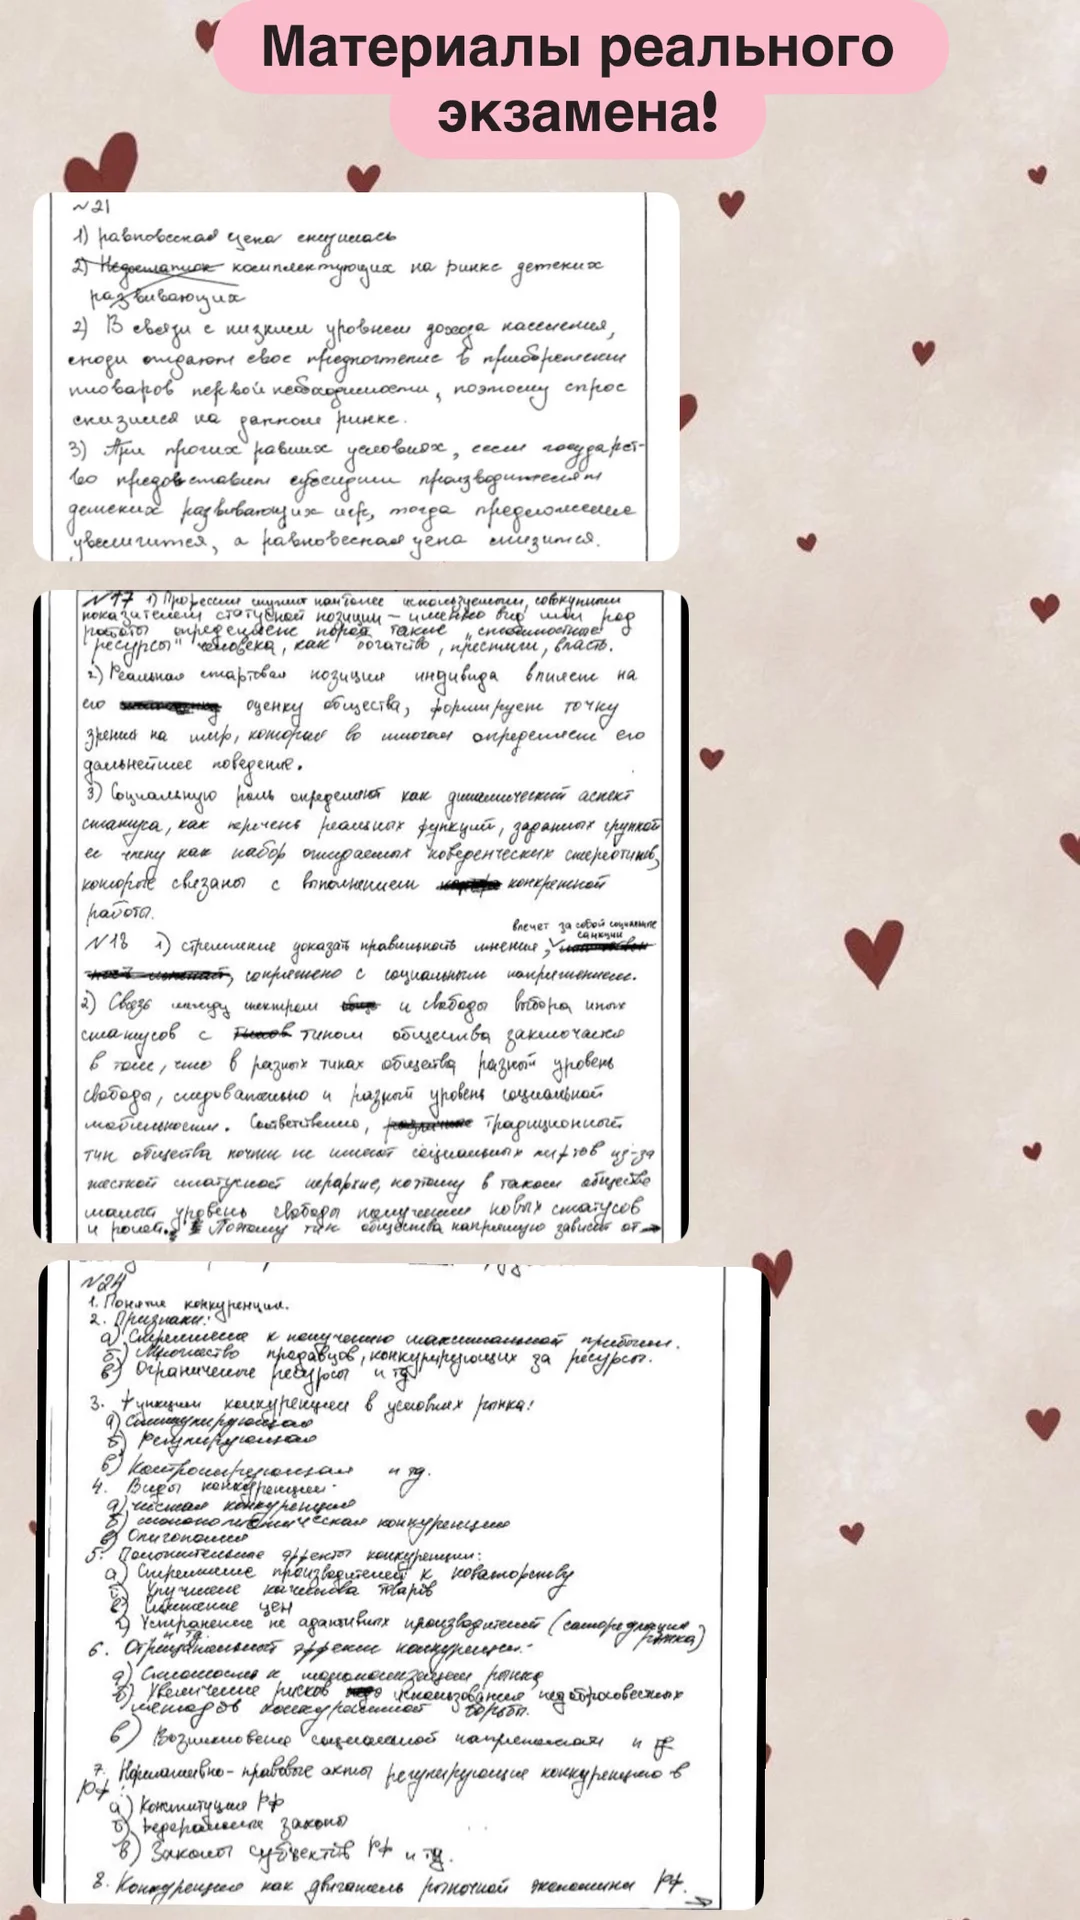 Материалы реального
экзамена!
№21
1) равновесная цена снизилась
2) Недостаток комплектующих на рынке детских
развивающих
2) В связи с низким уровнем дохода населения,
люди отдают свое предпочтение в приобретении
товаров первой необходимости, поэтому спрос
снизился на данном рынке.
3) При прочих равных условиях, если государст-
во предоставит субсидии производителям
детских развивающих игр, тогда предложение
увеличится, а равновесная цена снизится.
№17 1) Профессия служит наиболее используемым, совокупным
показателем статусной позиции – именно вид или род
работы определяет порой такие "стоимостные
ресурсы" человека, как богатство, престиж, власть.
2) Реальная стартовая позиция индивида влияет на
его оценку общества, формирует точку
зрения на мир, которая во многом определяет его
дальнейшее поведение.
3) Социальную роль определяют как динамический аспект
статуса, как перечень реальных функций, заданных группой
ее члену как набор ожидаемых поведенческих стереотипов,
которые связаны с выполнением конкретной
работы.
влечет за собой социальные
санкции
№18 1) стремление доказать правильность мнения,
сопряжено с социальным напряжением.
2) Связь между и свободы выбора иных
статусов с типом общества заключается
в том, что в разных типах общества разный уровень
свободы, следовательно и разный уровень социальной
мобильности. Соответственно, традиционный
тип общества почти не имеет социальных лифтов из-за
жесткой статусной иерархии, поэтому в таком обществе
малый уровень свободы получения новых статусов
и ролей. Поэтому тип общества напрямую зависит от →
№24
1. Понятие конкуренции.
2. Признаки:
а) Стремление к получению максимальной прибыли.
б) Множество продавцов, конкурирующих за ресурсы.
в) Ограниченные ресурсы и тд
3. Функции конкуренции в условиях рынка:
а) Стимулирующая
б) Регулирующая
в) Контролирующая и тд.
4. Виды конкуренции:
а) чистая конкуренция
б) монополистическая конкуренция
в) Олигополия
5. Положительные эффекты конкуренции:
а) Стремление производителей к новаторству
б) Улучшение качества товаров
в) Снижение цен
г) Устранение не адаптивных производителей (саморегуляция
рынка)
и тд.
6. Отрицательный эффект конкуренции:
а) Склонность к монополизации рынка
б) Увеличение рисков использования недобросовестных
методов конкурентной борьбы.
в) Возникновение социальной напряженности и тд
7. Нормативно-правовые акты регулирующие конкуренцию в
РФ:
а) Конституция РФ
б) Федеральные законы
в) Законы субъектов РФ и тд.
8. Конкуренция как двигатель рыночной экономики РФ.
→